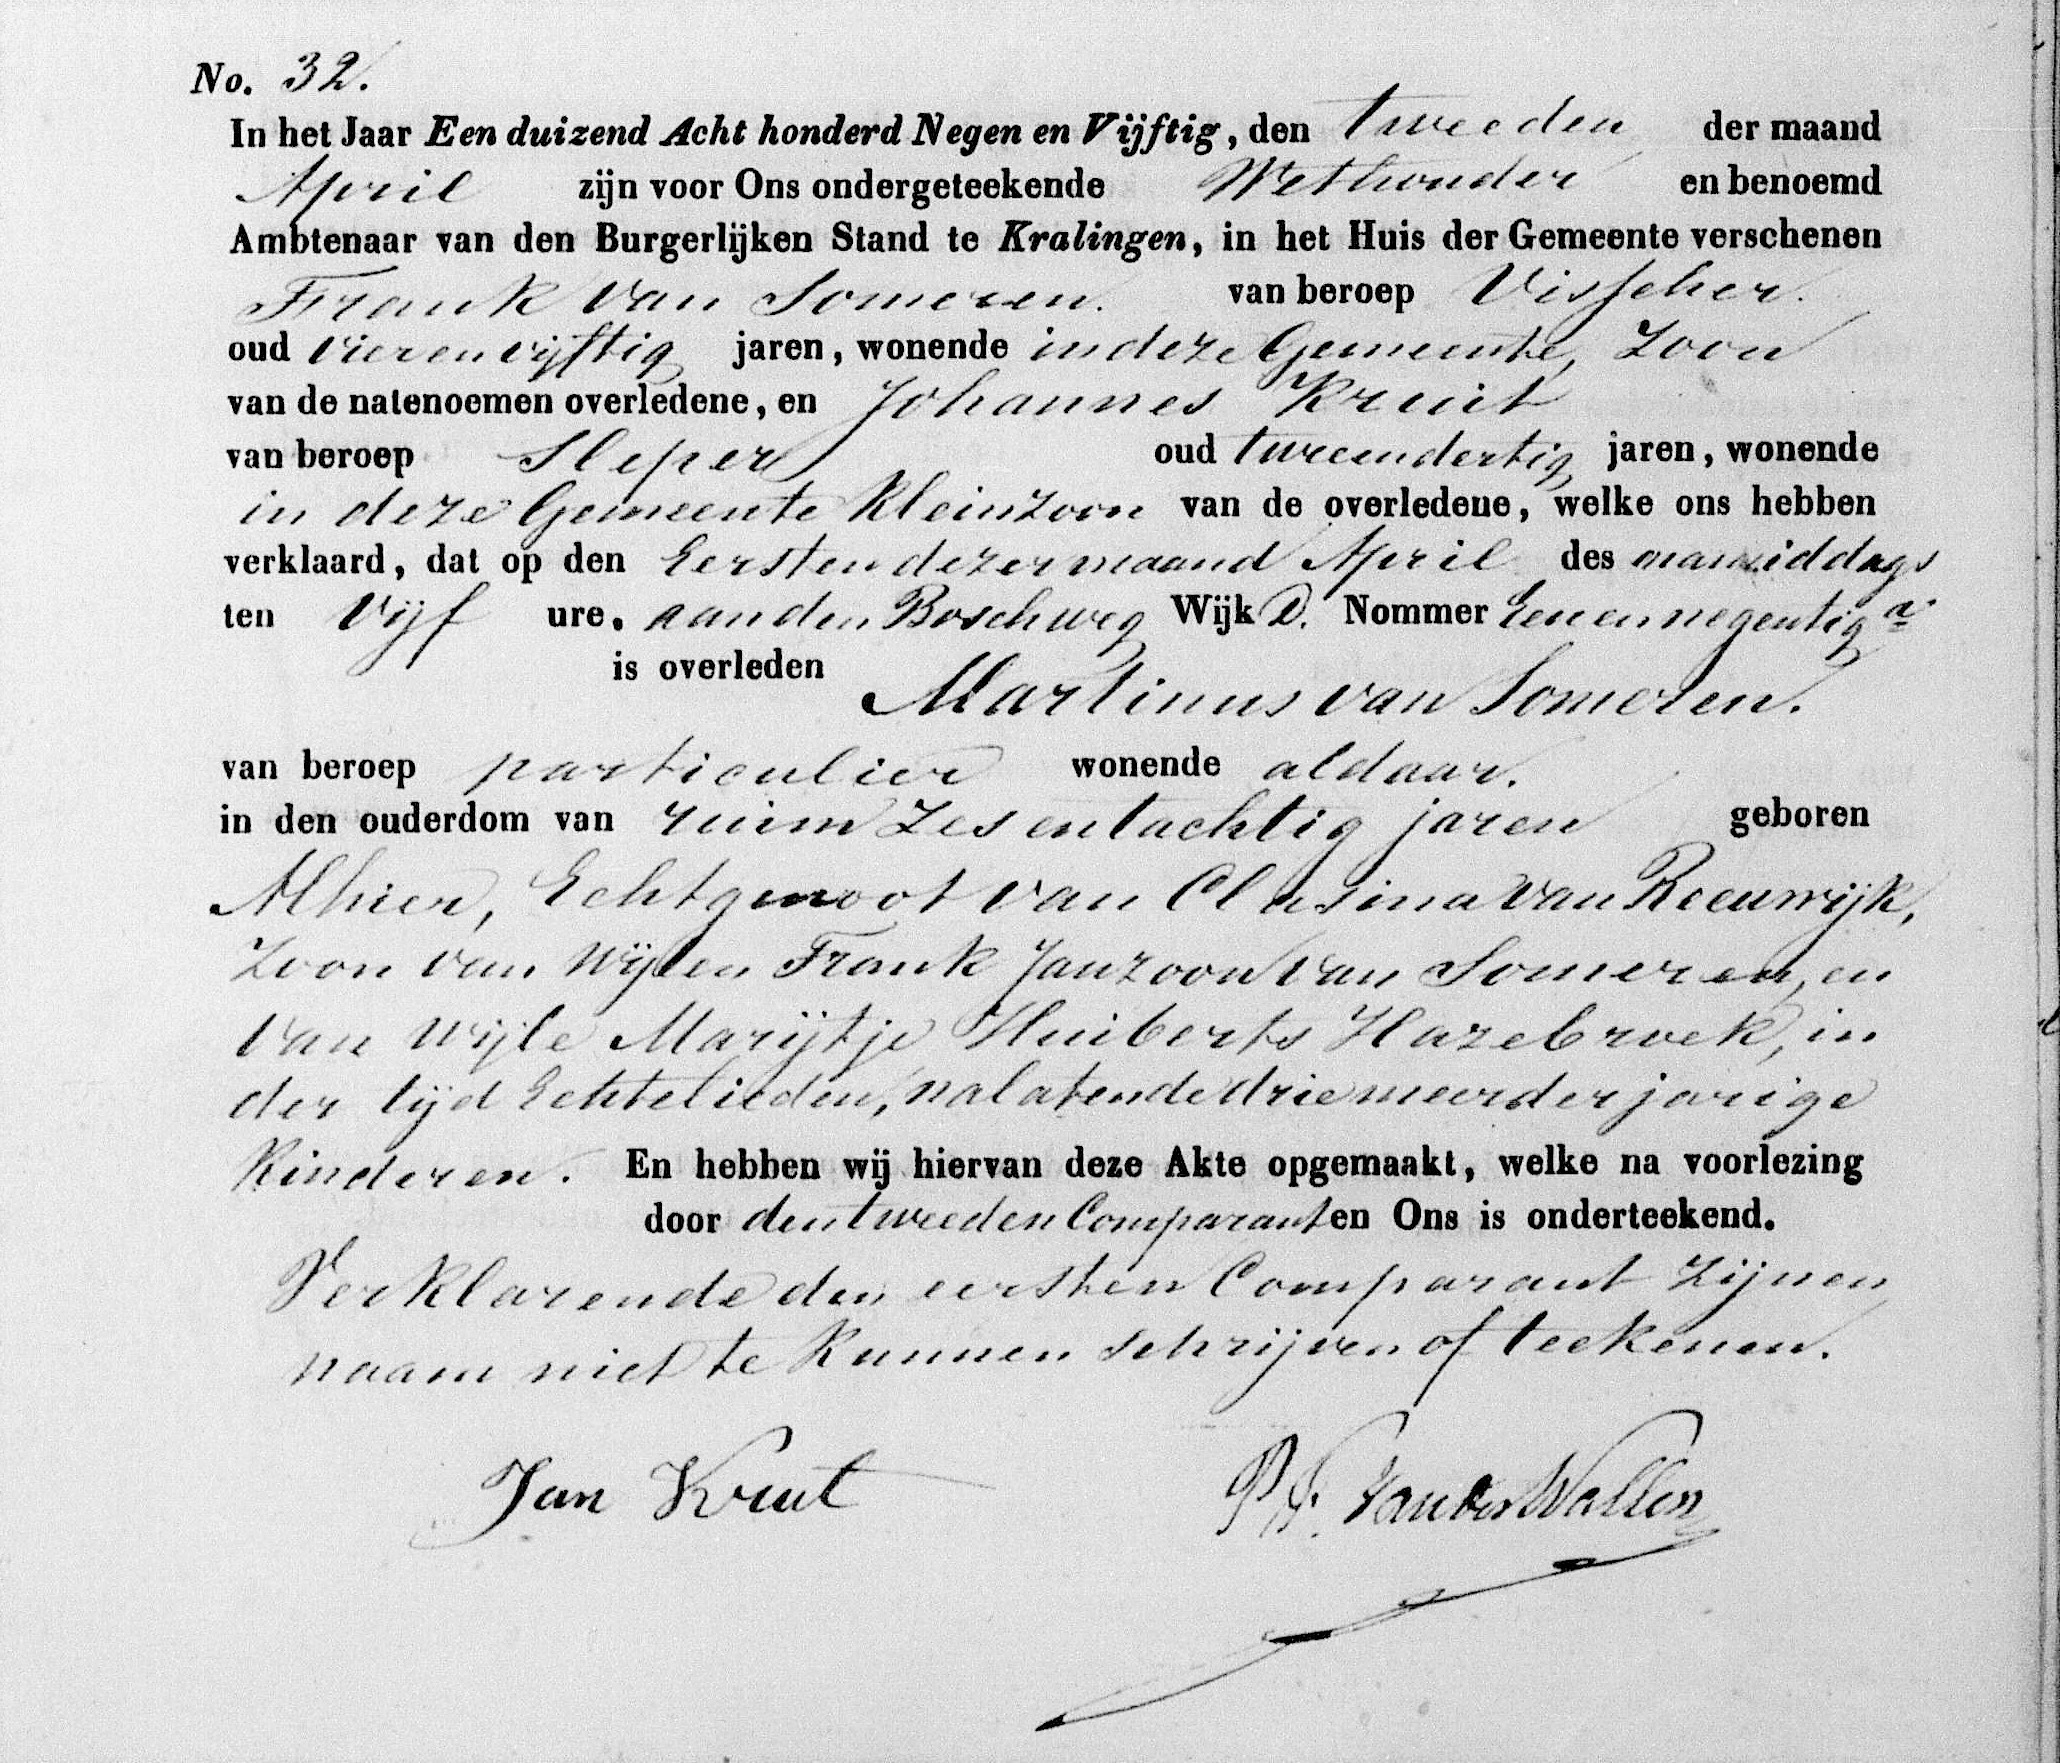 No. 32.
In het Jaar Een duizend Acht honderd Negen en Vijftig, den tweeden der maand
April zijn voor Ons ondergeteekende Wethouder en benoemd
Ambtenaar van den Burgerlijken Stand te Kralingen, in het Huis der Gemeente verschenen
Frank van Someren. van beroep Visscher.
oud vierenvijftig jaren, wonende in deze Gemeente, Zoon
van de natenoemen overledene, en Johannes Kruit
van beroep Sleper oud tweeendertig jaren, wonende
in deze Gemeente Kleinzoon van de overledene, welke ons hebben
verklaard, dat op den Eersten dezer maand April des namiddags
ten Vijf ure. aan den Boschweg Wijk D. Nommer Eenennegentig a
is overleden Martinus van Someren.
van beroep particulier wonende aldaar.
in den ouderdom van ruim Zesentachtig jaren geboren
Alhier, Echtgenoot van Clasina van Reeuwijk,
Zoon van Wijlen Frank Janzoon van Someren, en
van Wijle Marijtje Huiberts Hazebroek, in
der tijd Echtelieden, nalatende drie meerderjarige
Kinderen. En hebben wij hiervan deze Akte opgemaakt, welke na voorlezing
door den tweeden Comparant en Ons is onderteekend.
Verklarende den eersten Comparant Zijnen
naam niet te Kunnen schrijven of teekenen.
Jan Kruit P.F. van der Wallen